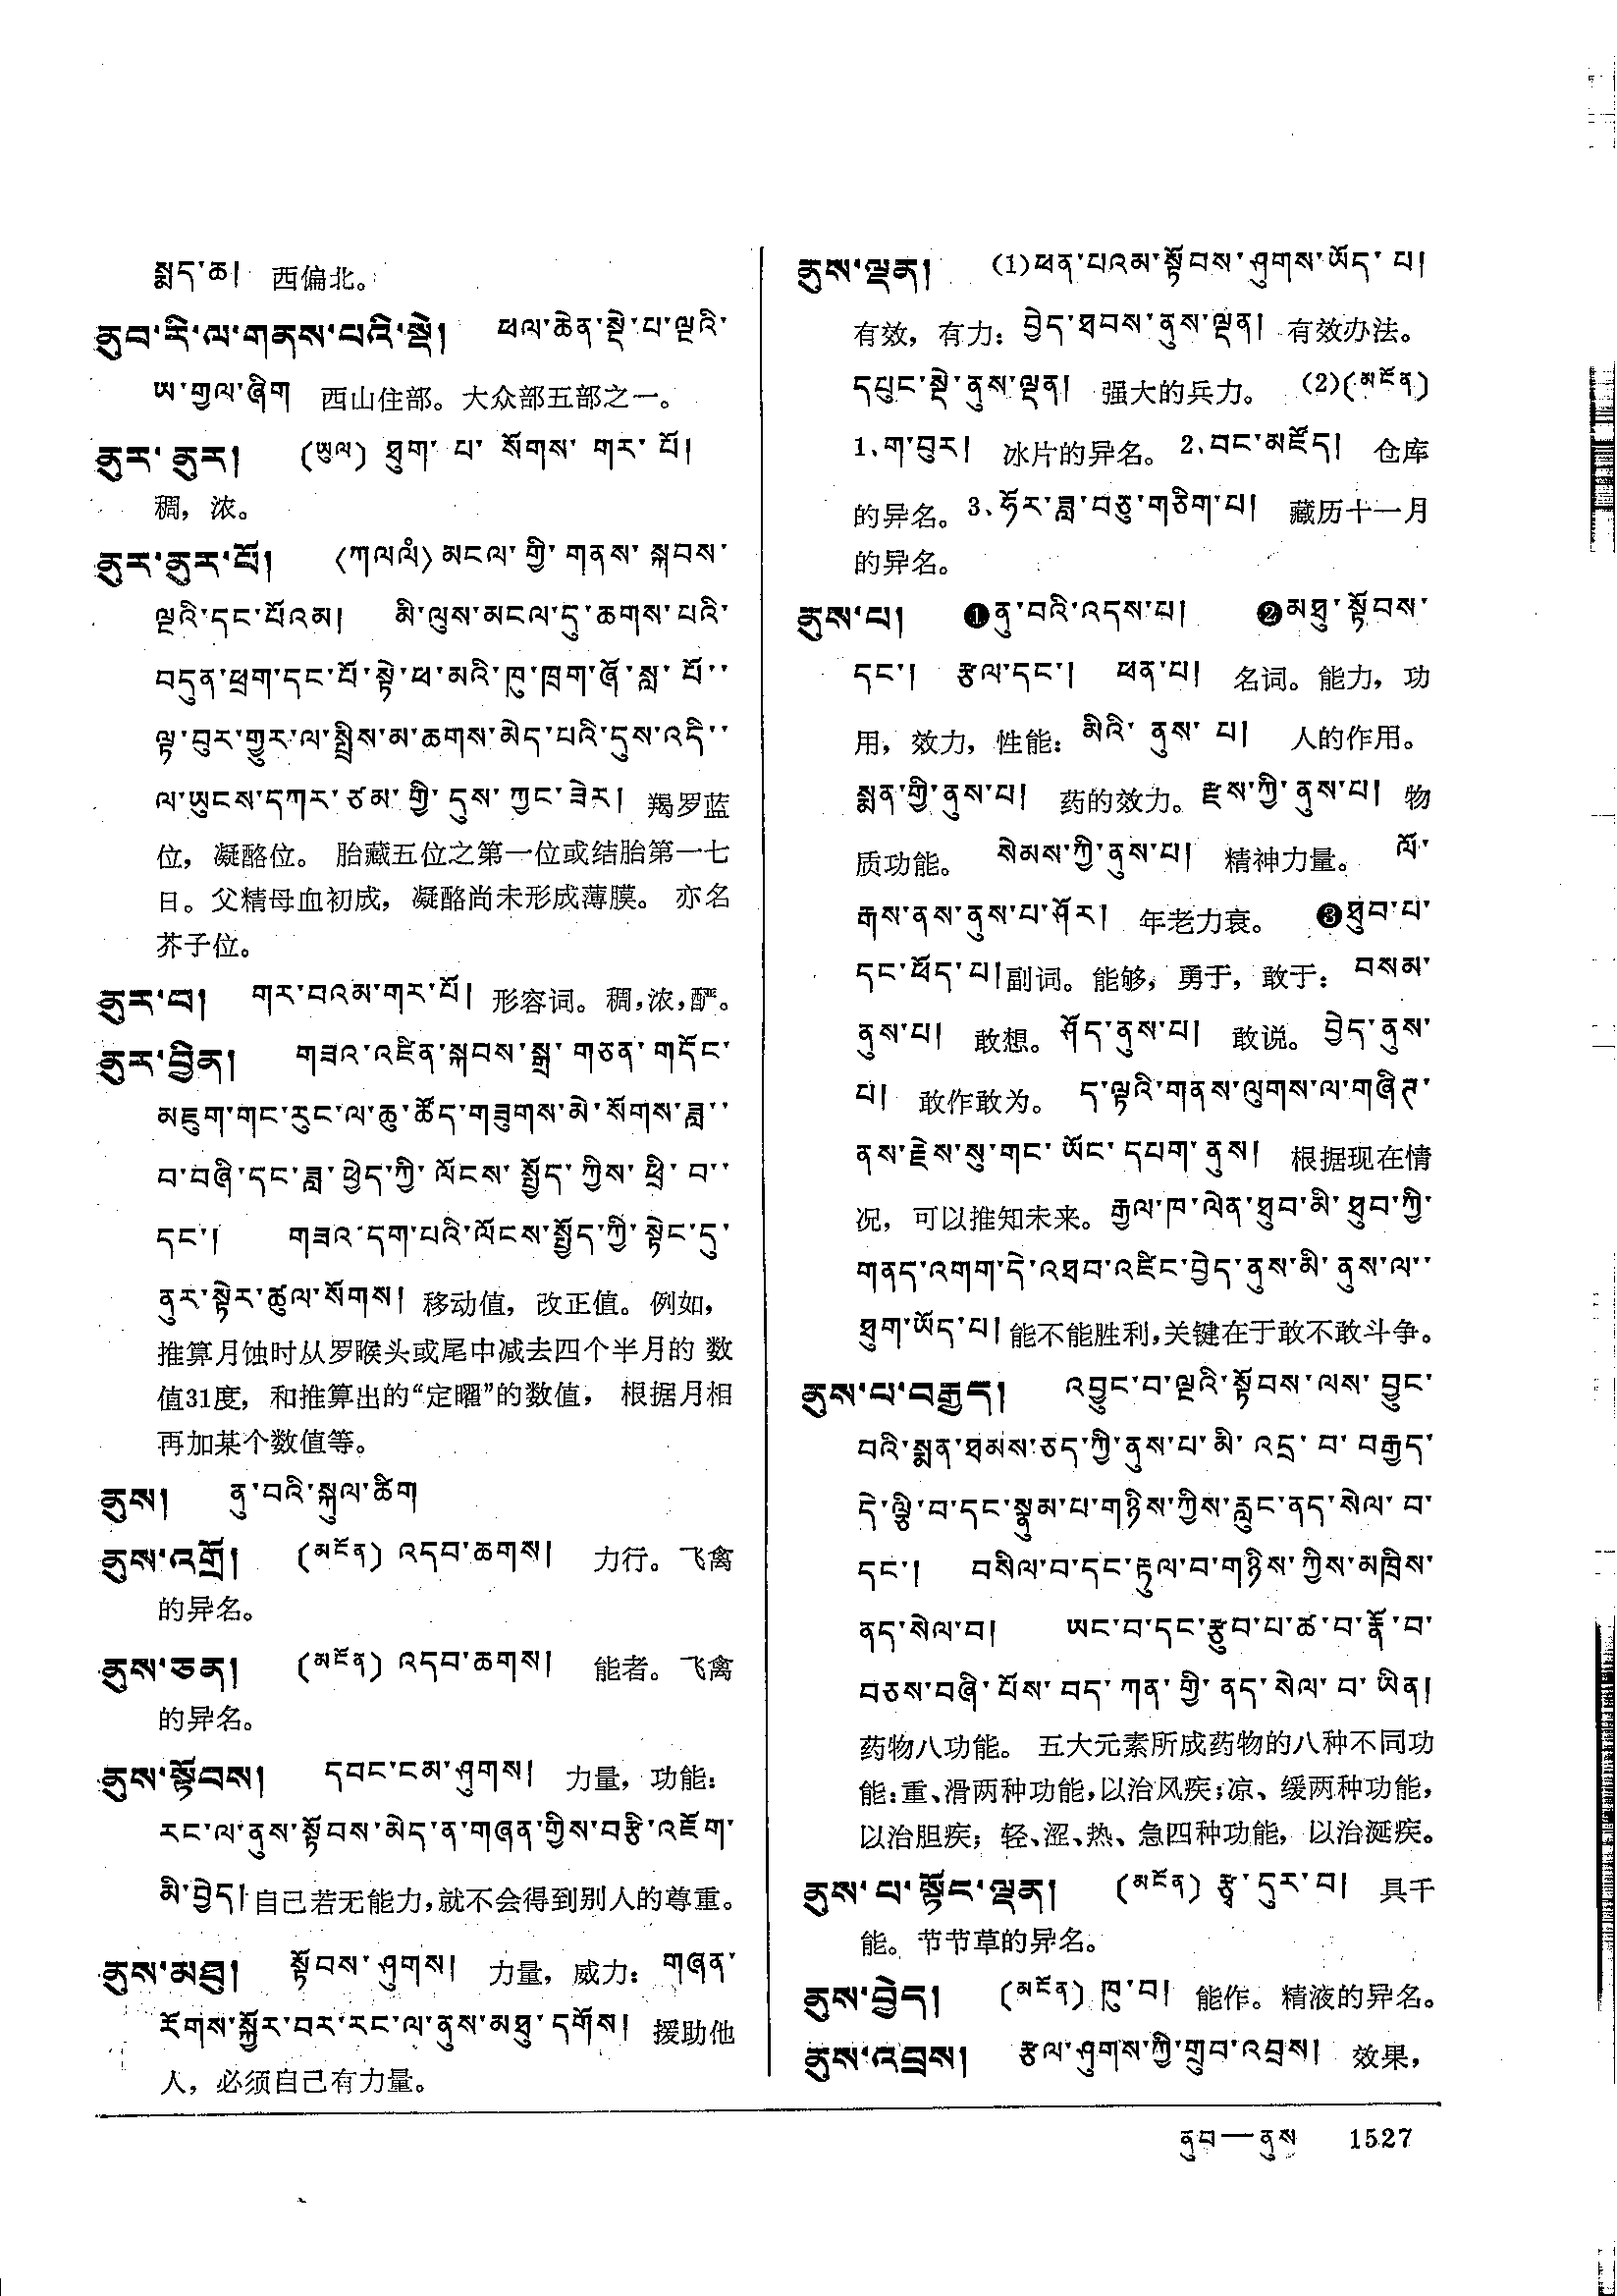 སྨད་ཆ། 西偏北。
ནུབ་རི་ལ་གནས་པའི་སྡེ། ཕལ་ཆེན་སྡེ་པ་ལྔའི་
ཨ་གྱལ་ཞིག 西山住部。大众部五部之一。
ནུར་ནུར། (ཡུལ) ཐུག་པ་སོགས་གར་པོ།
稠，浓。
ནུར་ནུར་པོ། (ཀལལཾ) མངལ་གྱི་གནས་སྐབས་
ལྔའི་དང་པོའམ། མི་ལུས་མངལ་དུ་ཆགས་པའི་
བདུན་ཕྲག་དང་པོ་སྟེ་ཕ་མའི་ཁུ་ཁྲག་ཞོ་སླ་པོ་་
ལྟ་བུར་གྱུར་ལ་སྤྲིས་མ་ཆགས་མེད་པའི་དུས་འདི་་
ལ་ཡུངས་དཀར་ཙམ་གྱི་དུས་ཀྱང་ཟེར། 羯罗蓝
位，凝酪位。 胎藏五位之第一位或结胎第一七
日。父精母血初成，凝酪尚未形成薄膜。 亦名
芥子位。
ནུར་བ། གར་བའམ་གར་པོ། 形容词。稠，浓，酽。
ནུར་བྱིན། གཟའ་འཛིན་སྐབས་སྒྲ་གཅན་གདོང་
མཇུག་གང་རུང་ལ་ཆུ་ཚོད་གཟུགས་མེ་སོགས་ཟླ་་
བ་བཞི་དང་ཟླ་ཕྱེད་ཀྱི་ལོངས་སྤྱོད་ཀྱིས་ཕྲི་བ་་
དང་། གཟའ་དག་པའི་ལོངས་སྤྱོད་ཀྱི་སྟེང་དུ་
ནུར་སྟེར་ཚུལ་སོགས། 移动值，改正值。例如，
推算月蚀时从罗睺头或尾中减去四个半月的 数
值31度，和推算出的“定曜”的数值， 根据月相
再加某个数值等。
ནུས། ནུ་བའི་སྐུལ་ཚིག
ནུས་འགྲོ། (མངོན) འདབ་ཆགས། 力行。飞禽
的异名。
ནུས་ཅན། (མངོན) འདབ་ཆགས། 能者。飞禽
的异名。
ནུས་སྟོབས། དབང་ངམ་ཤུགས། 力量，功能：
རང་ལ་ནུས་སྟོབས་མེད་ན་གཞན་གྱིས་བརྩི་འཇོག་
མི་བྱེད། 自己若无能力，就不会得到别人的尊重。
ནུས་མཐུ། སྟོབས་ཤུགས། 力量，威力： གཞན་
རོགས་སྐྱོར་བར་རང་ལ་ནུས་མཐུ་དགོས། 援助他
人，必须自己有力量。
ནུས་ལྡན། (1) ཕན་པའམ་སྟོབས་ཤུགས་ཡོད་པ།
有效，有力： བྱེད་ཐབས་ནུས་ལྡན། 有效办法。
དཔུང་སྡེ་ནུས་ལྡན། 强大的兵力。 (2)(མངོན)
1、ག་བུར། 冰片的异名。 2、བང་མཛོད། 仓库
的异名。 3、ཧོར་ཟླ་བཅུ་གཅིག་པ། 藏历十一月
的异名。
ནུས་པ། ❶ནུ་བའི་འདས་པ། ❷མཐུ་སྟོབས་
དང་། རྩལ་དང་། ཕན་པ། 名词。能力，功
用，效力，性能： མིའི་ནུས་པ། 人的作用。
སྨན་གྱི་ནུས་པ། 药的效力。 རྫས་ཀྱི་ནུས་པ། 物
质功能。 སེམས་ཀྱི་ནུས་པ། 精神力量。 ལོ་
རྒས་ནས་ནུས་པ་ཤོར། 年老力衰。 ❸ཐུབ་པ་
དང་ཕོད་པ། 副词。能够，勇于，敢于： བསམ་
ནུས་པ། 敢想。 ཤོད་ནུས་པ། 敢说。 བྱེད་ནུས་
པ། 敢作敢为。 ད་ལྟའི་གནས་ལུགས་ལ་གཞིཊ་
ནས་རྗེས་སུ་གང་ཡོང་དཔག་ནུས། 根据现在情
况，可以推知未来。 རྒྱལ་ཁ་ལེན་ཐུབ་མི་ཐུབ་ཀྱི་
གནད་འགག་དེ་འཐབ་འཛིང་བྱེད་ནུས་མི་ནུས་ལ་་
ཐུག་ཡོད་པ། 能不能胜利，关键在于敢不敢斗争。
ནུས་པ་བརྒྱད། འབྱུང་བ་ལྔའི་སྟོབས་ལས་བྱུང་
བའི་སྨན་ཐམས་ཅད་ཀྱི་ནུས་པ་མི་འདྲ་བ་བརྒྱད་
དེ་ལྕི་བ་དང་སྣུམ་པ་གཉིས་ཀྱིས་རླུང་ནད་སེལ་བ་
དང་། བསིལ་བ་དང་རྟུལ་བ་གཉིས་ཀྱིས་མཁྲིས་
ནད་སེལ་བ། ཡང་བ་དང་རྩུབ་པ་ཚ་བ་རྣོ་བ་
བཅས་བཞི་པོས་བད་ཀན་གྱི་ནད་སེལ་བ་ཡིན།
药物八功能。 五大元素所成药物的八种不同功
能：重、滑两种功能，以治风疾；凉、缓两种功能，
以治胆疾；轻、涩、热、急四种功能，以治涎疾。
ནུས་པ་སྟོང་ལྡན། (མངོན) རྩྭ་དུར་བ། 具千
能。节节草的异名。
ནུས་བྱེད། (མངོན) ཁུ་བ། 能作。精液的异名。
ནུས་འབྲས། རྩལ་ཤུགས་ཀྱི་གྲུབ་འབྲས། 效果，
ནུབ—ནུས 1527